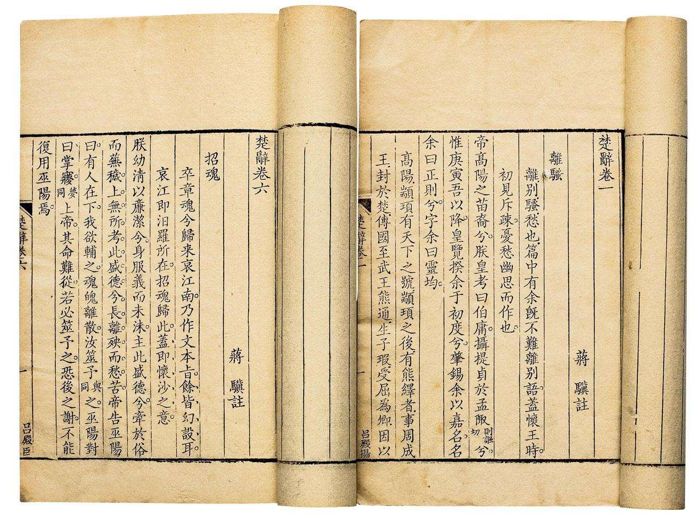 楚辭卷一
蔣驥註
離騷
離別騷愁也。篇中有余旣不難離別語。蓋懷王時。
初見斥疎。憂愁幽思而作也。
帝髙陽之苗裔兮。朕皇考曰伯庸。攝提貞於孟陬則謳切兮。
惟庚寅吾以降。皇覽揆余于初度兮。肇錫余以嘉名。名
余曰正則兮。字余曰靈均。
髙陽。顓頊有天下之號。顓頊之後。有熊繹者。事周成
王。封於楚。傳國至武王熊通。生子瑕。受屈為卿。因以
楚辭卷一
一
楚辭卷六
蔣驥註
招魂
卒章魂兮歸来哀江南。乃作文本旨。餘皆幻設耳。
哀江即汨羅所在。招魂歸此。蓋即懷沙之意。
朕幼清以廉潔兮。身服義而未沬。主此盛德兮。牽於俗
而蕪穢。上無所考此盛德兮。長離殃而愁苦。帝告巫陽
曰。有人在下。我欲輔之。魂魄離散。汝筮予與同之。巫陽對
曰。掌㝱夢同。上帝其命難從。若必筮予之。恐後之謝。不能
復用巫陽焉。
楚辭卷六
一